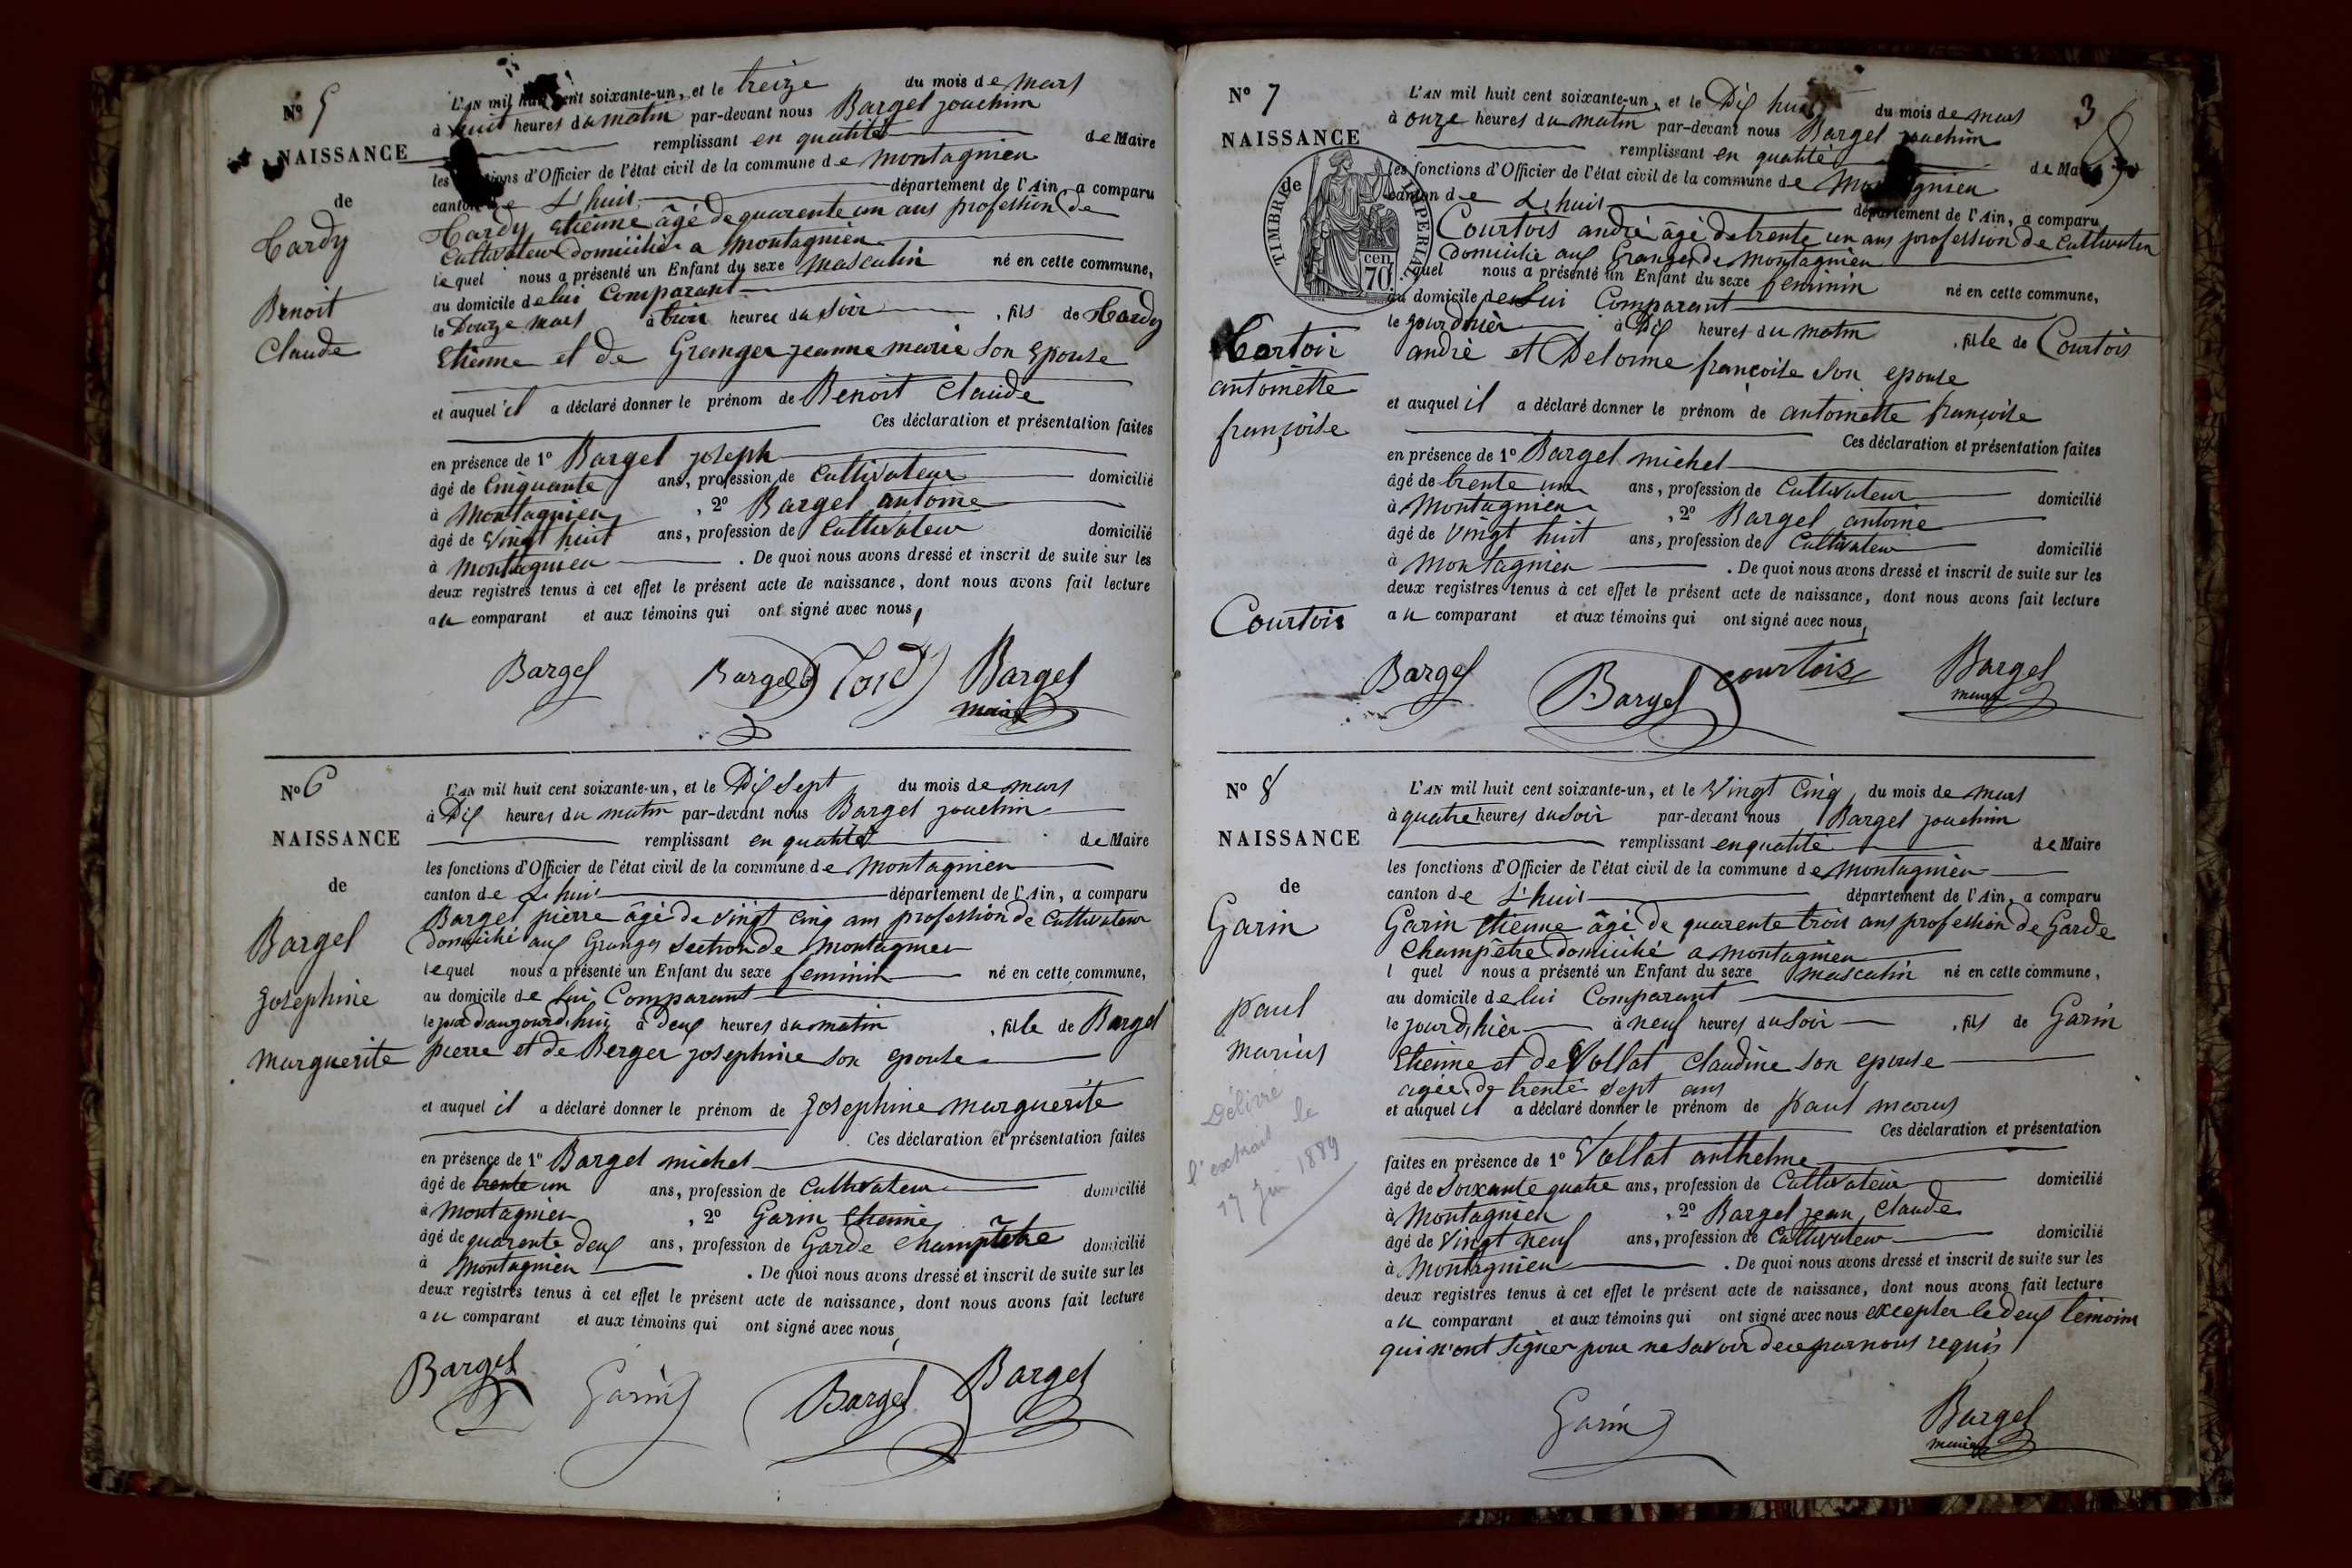 Nº 5
NAISSANCE
de
Hardy
Benoit
Claude
L'AN mil huit cent soixante-un, et le treize du mois de mars
à huit heures du matin par-devant nous Bargel joachim
remplissant en qualité de Maire
les fonctions d'Officier de l'état civil de la commune de montagnieu
canton de L'huis département de l'Ain, a comparu
Hardy Etienne âgé de quarente un ans profession de
Cultivateur domicilié a montagnieu
lequel nous a présenté un Enfant du sexe masculin né en cette commune,
au domicile de lui Comparant
le Douze mars à trois heures du soir, fils de Hardy
Etienne et de Granger jeanne marie son Epouse
et auquel il a déclaré donner le prénom de Benoit Claude
Ces déclaration et présentation faites
en présence de 1º Bargel joseph
âgé de Cinquante ans, profession de Cultivateur domicilié
à Montagnieu, 2º Bargel antoine
âgé de Vingt huit ans, profession de Cultivateur domicilié
à Montagnieu. De quoi nous avons dressé et inscrit de suite sur les
deux registres tenus à cet effet le présent acte de naissance, dont nous avons fait lecture
au comparant et aux témoins qui ont signé avec nous,
Bargel Bargel Bargel
maire
Nº 6
NAISSANCE
de
Bargel
Josephine
marguerite
L'AN mil huit cent soixante-un, et le Dix sept du mois de mars
à Dix heures du matin par-devant nous Bargel joachim
remplissant en qualité de Maire
les fonctions d'Officier de l'état civil de la commune de montagnieu
canton de L'huis département de l'Ain, a comparu
Bargel pierre âgé de vingt cinq ans profession de Cultivateur
domicilié aux Granges section de montagnieu
lequel nous a présenté un Enfant du sexe feminin né en cette commune,
au domicile de lui Comparant
le jour d'aujourd'hui à deux heures du matin, fille de Bargel
pierre et de Berger josephine son epouse
et auquel il a déclaré donner le prénom de Josephine marguerite
Ces déclaration et présentation faites
en présence de 1º Bargel michel
âgé de trente un ans, profession de Cultivateur domicilié
à Montagnieu, 2º Garin Etienne
âgé de quarente deux ans, profession de Garde Champêtre domicilié
à Montagnieu. De quoi nous avons dressé et inscrit de suite sur les
deux registres tenus à cet effet le présent acte de naissance, dont nous avons fait lecture
au comparant et aux témoins qui ont signé avec nous,
Bargel Garin Bargel Bargel
3
Nº 7
NAISSANCE
de
TIMBRE IMPERIAL
70 cen
Cortois
antoinette
françoise
Courtois
L'AN mil huit cent soixante-un, et le Dix huit du mois de mars
à onze heures du matin par-devant nous Bargel joachim
remplissant en qualité de Maire
les fonctions d'Officier de l'état civil de la commune de Montagnieu
canton de L'huis département de l'Ain, a comparu
Courtois andré âgé de trente un ans profession de Cultivateur
domicilié aux Granges de montagnieu
quel nous a présenté un Enfant du sexe feminin né en cette commune,
au domicile de lui Comparant
le jour d'hier à Dix heures du matin, fille de Courtois
andré et Delorme françoise son epouse
et auquel il a déclaré donner le prénom de antoinette françoise
Ces déclaration et présentation faites
en présence de 1º Bargel michel
âgé de trente un ans, profession de Cultivateur domicilié
à Montagnieu, 2º Bargel antoine
âgé de Vingt huit ans, profession de Cultivateur domicilié
à Montagnieu. De quoi nous avons dressé et inscrit de suite sur les
deux registres tenus à cet effet le présent acte de naissance, dont nous avons fait lecture
au comparant et aux témoins qui ont signé avec nous,
Bargel Bargel courtois Bargel
maire
Nº 8
NAISSANCE
de
Garin
paul
marius
Délivré
l'extrait le
17 Juin 1889
L'AN mil huit cent soixante-un, et le Vingt Cinq, du mois de mars
à quatre heures du soir par-devant nous Bargel joachim
remplissant en qualité de Maire
les fonctions d'Officier de l'état civil de la commune de Montagnieu
canton de L'huis département de l'Ain, a comparu
Garin Etienne âgé de quarente trois ans profession de Garde
Champêtre domicilié a montagnieu
l quel nous a présenté un Enfant du sexe masculin né en cette commune,
au domicile de lui Comparant
le jour d'hier à neuf heures du soir, fils de Garin
Etienne et de Vollat Claudine son epouse
agée de trente sept ans
et auquel il a déclaré donner le prénom de paul marius
Ces déclaration et présentation
faites en présence de 1º Vallat anthelme
âgé de Soixante quatre ans, profession de Cultivateur domicilié
à Montagnieu, 2º Bargel jean Claude
âgé de Vingt neuf ans, profession de Cultivateur domicilié
à Montagnieu. De quoi nous avons dressé et inscrit de suite sur les
deux registres tenus à cet effet le présent acte de naissance, dont nous avons fait lecture
au comparant et aux témoins qui ont signé avec nous excepter le deux temoins
qui n'ont signer pour ne savoir de ce par nous requis
Garin Bargel
maire